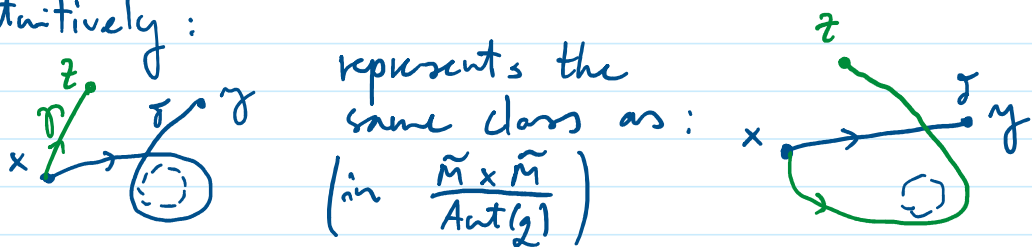 tuitively :
z
γ
x
γ y
represents the
same class as :
(in M̃ x M̃ / Aut(q))
z
x
γ y